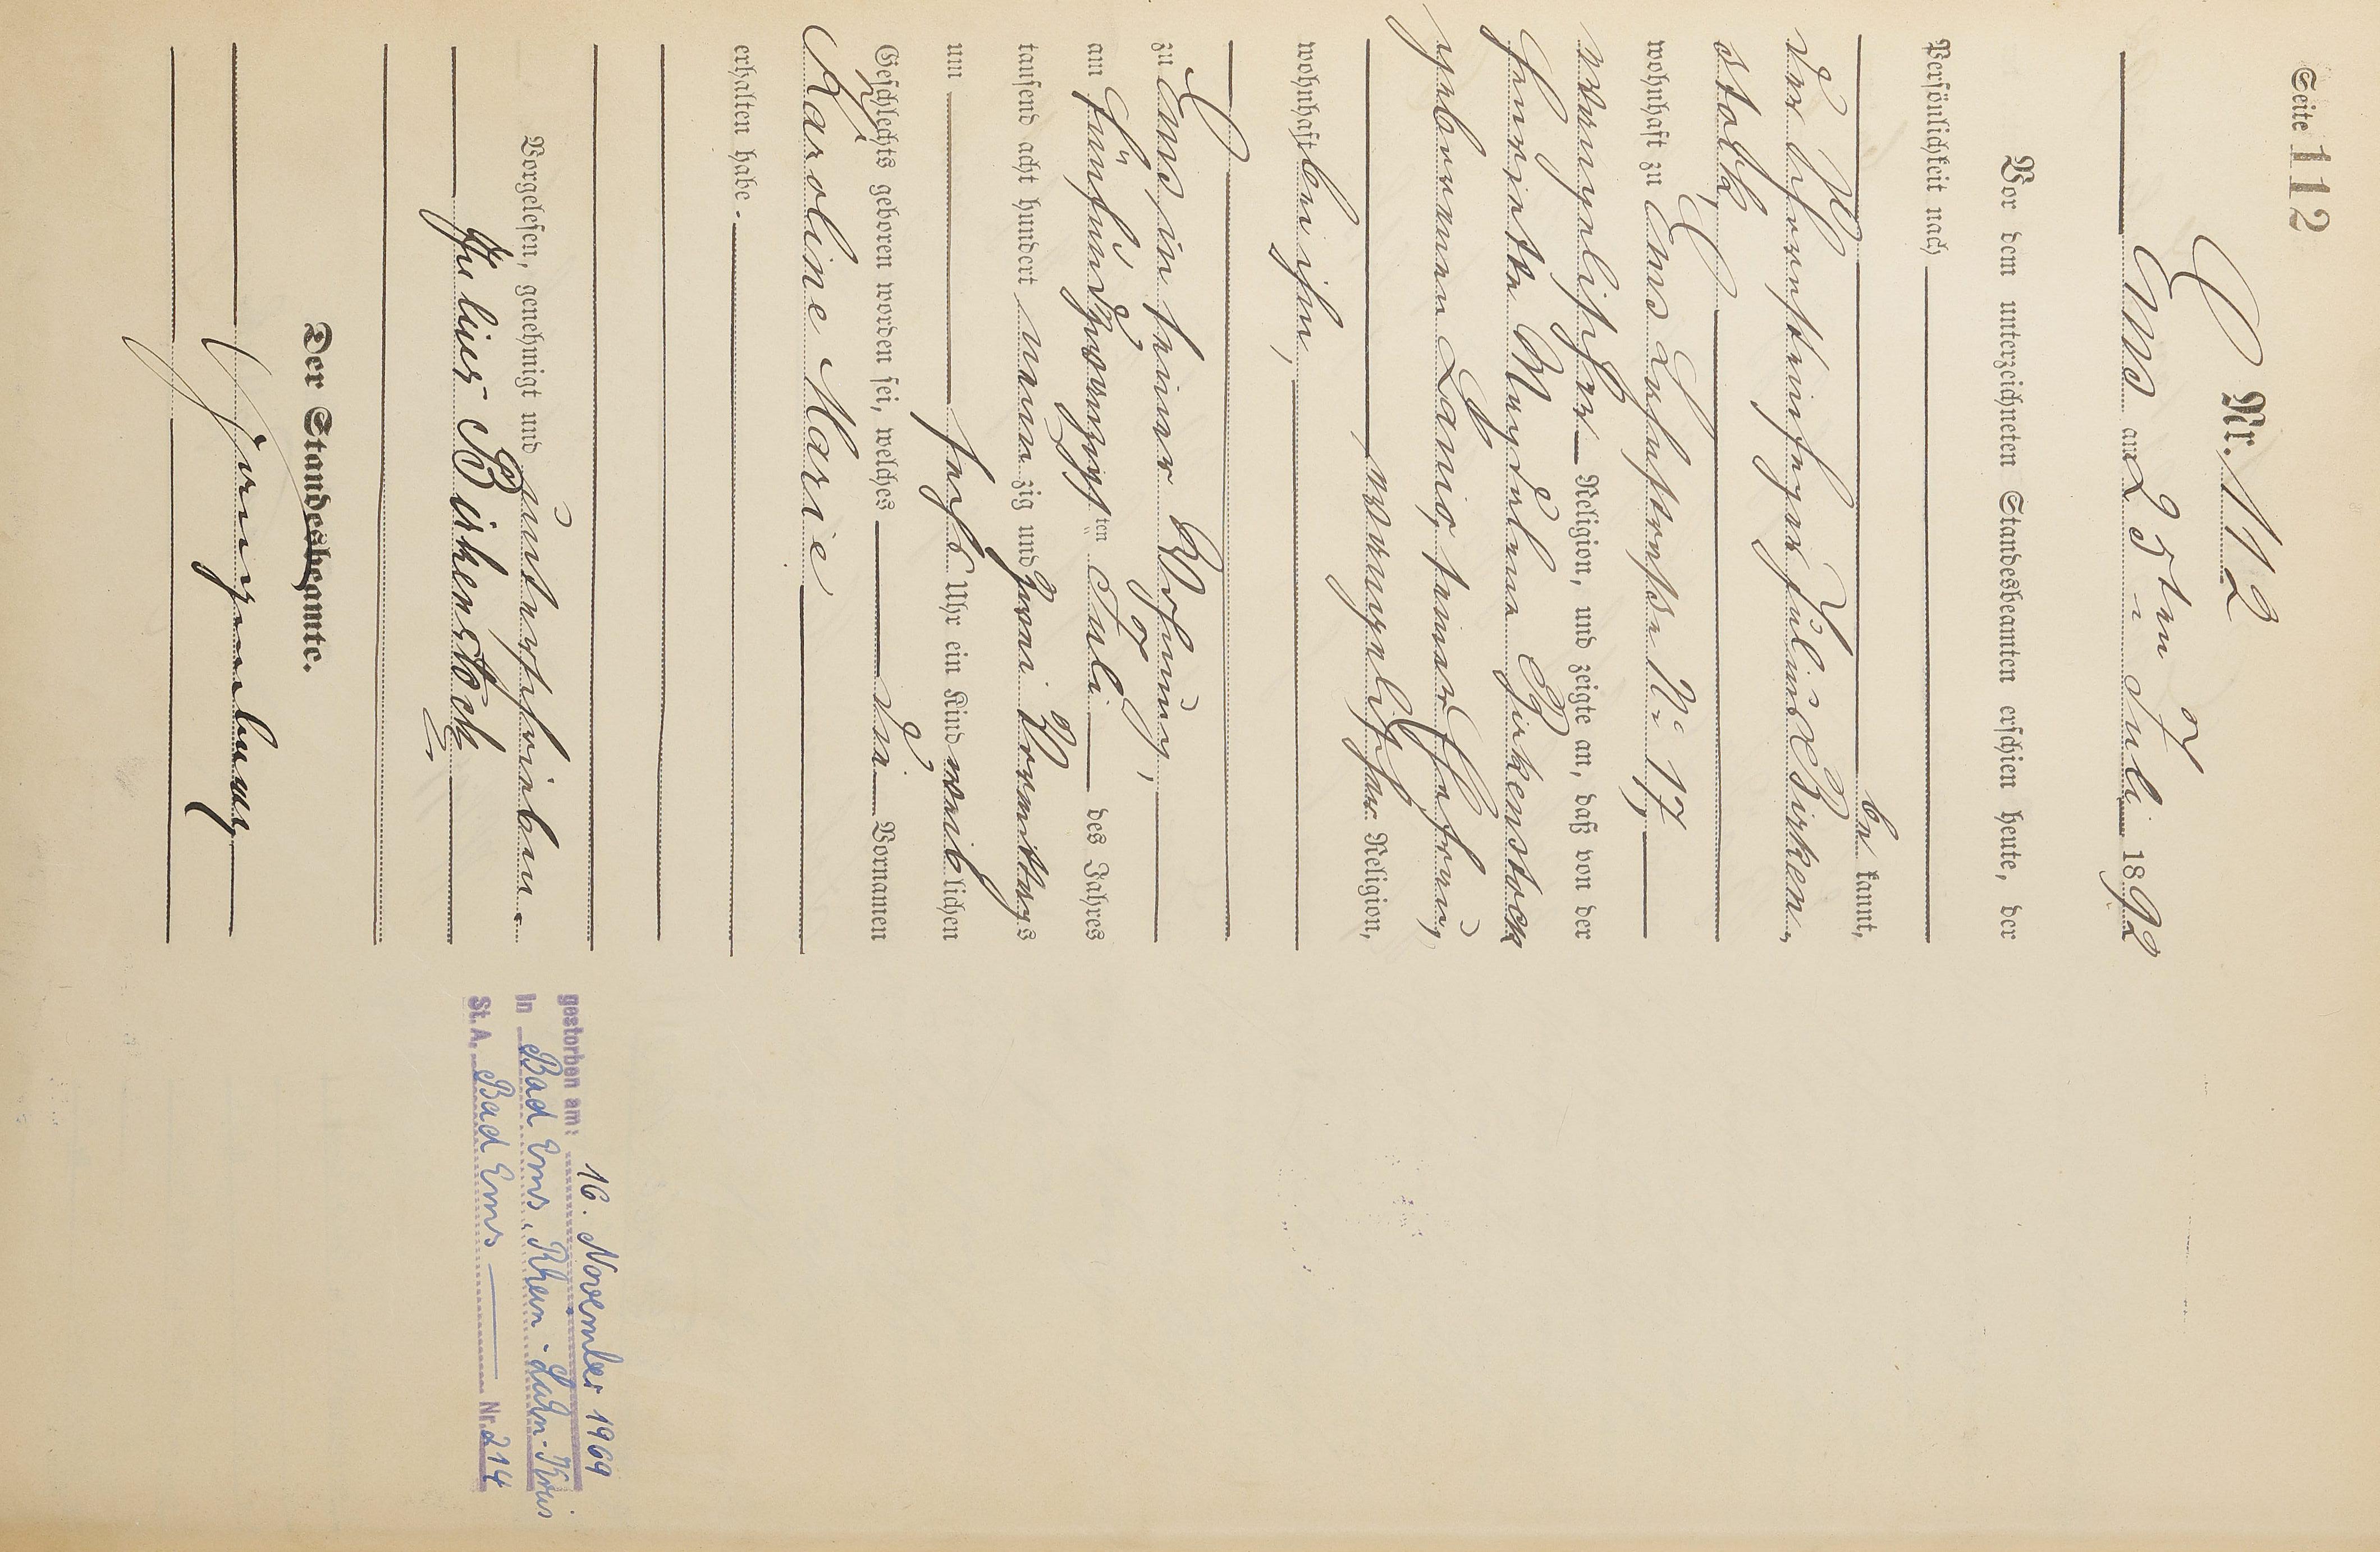 Seite 112
Nr. 112
Ems am 25ten Juli 1892
Vor dem unterzeichneten Standesbeamten erschien heute, der
Persönlichkeit nach
be kannt,
der Schornsteinfeger Julius Birken-
stock,
wohnhaft zu Ems Lahnstraße No 17,
evangelischer Religion, und zeigte an, daß von der
Henriette Magdalene Birkenstock
geborenen Lanio, seiner Ehefrau,
evangelischer Religion,
wohnhaft bei ihm,
zu Ems in seiner Wohnung,
am fünfundzwanzigsten Juli des Jahres
tausend acht hundert neunzig und zwei Vormittags
um sechs Uhr ein Kind weiblichen
Geschlechts geboren worden sei, welches die Vornamen
Karoline Marie
erhalten habe.
Vorgelesen, genehmigt und unterschrieben.
Julius Birkenstock
Der Standesbeamte.
gestorben am: 16. November 1969
in Bad Ems, Rhein-Lahn-Kreis
St. A. Bad Ems Nr. 214